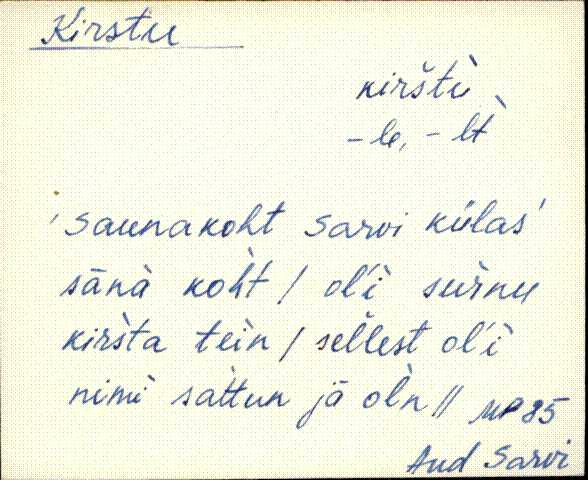 Kirstu
kirštù
-le, -lt̀
'saunakoht Sarvi külas'
sānà kòht / ol'ì suŕnu
kiršta teìn / sellest ol'ì
nimì sàttun jä òln //
MP 85
Aud Sarvi